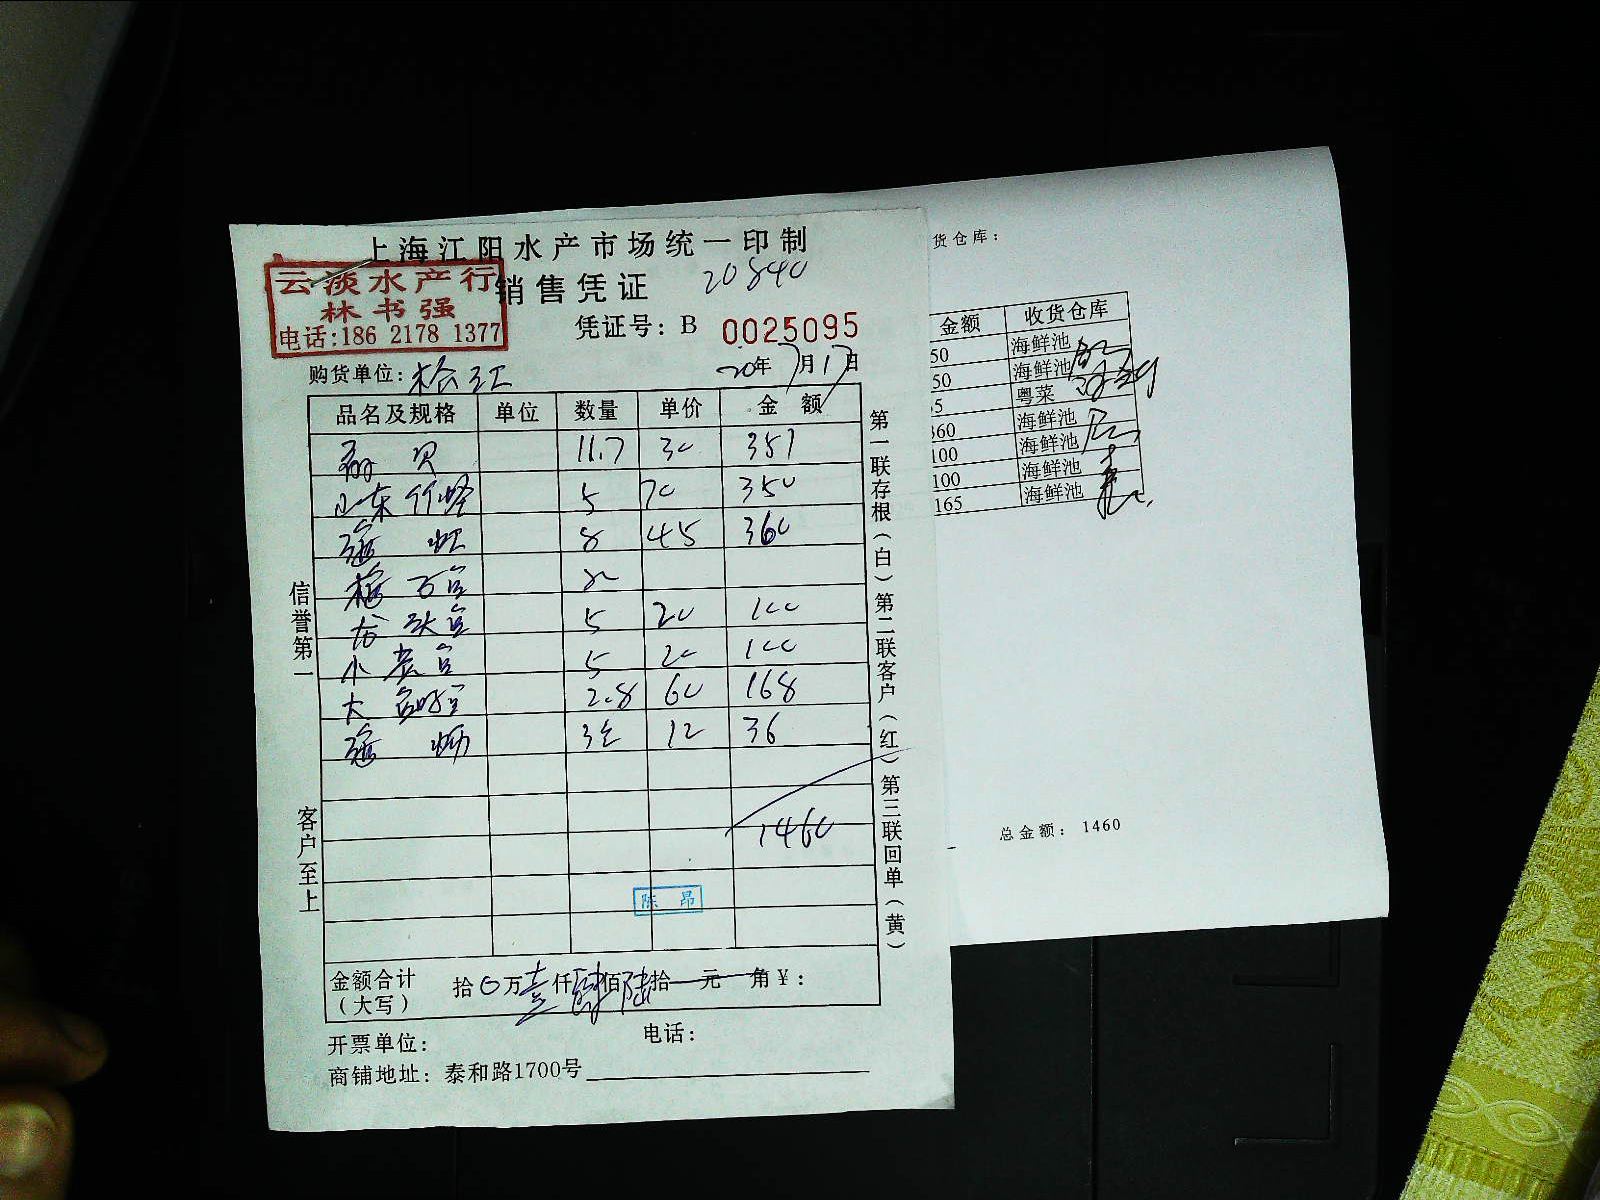 上海江阳水产市场统一印制
云淡水产行
林书强
电话:186 2178 1377
销售凭证
20840
凭证号: B 0025095
购货单位: 松江
20年7月17日
品名及规格 单位 数量 单价 金额
贝 11.7 30 351
山东竹蛏 5 70 350
8 45 360
5 20 100
5 20 100
大 2.8 60 168
12 36
1460
陈昂
金额合计 拾0万壹仟肆佰陆拾元角¥:
(大写)
开票单位:
电话:
商铺地址: 泰和路1700号
信誉第一
客户至上
第一联存根(白)第二联客户(红)第三联回单(黄)
货仓库:
金额 收货仓库
50 海鲜池
50 海鲜池
5 粤菜
360 海鲜池
100 海鲜池
100 海鲜池
165 海鲜池
总金额: 1460